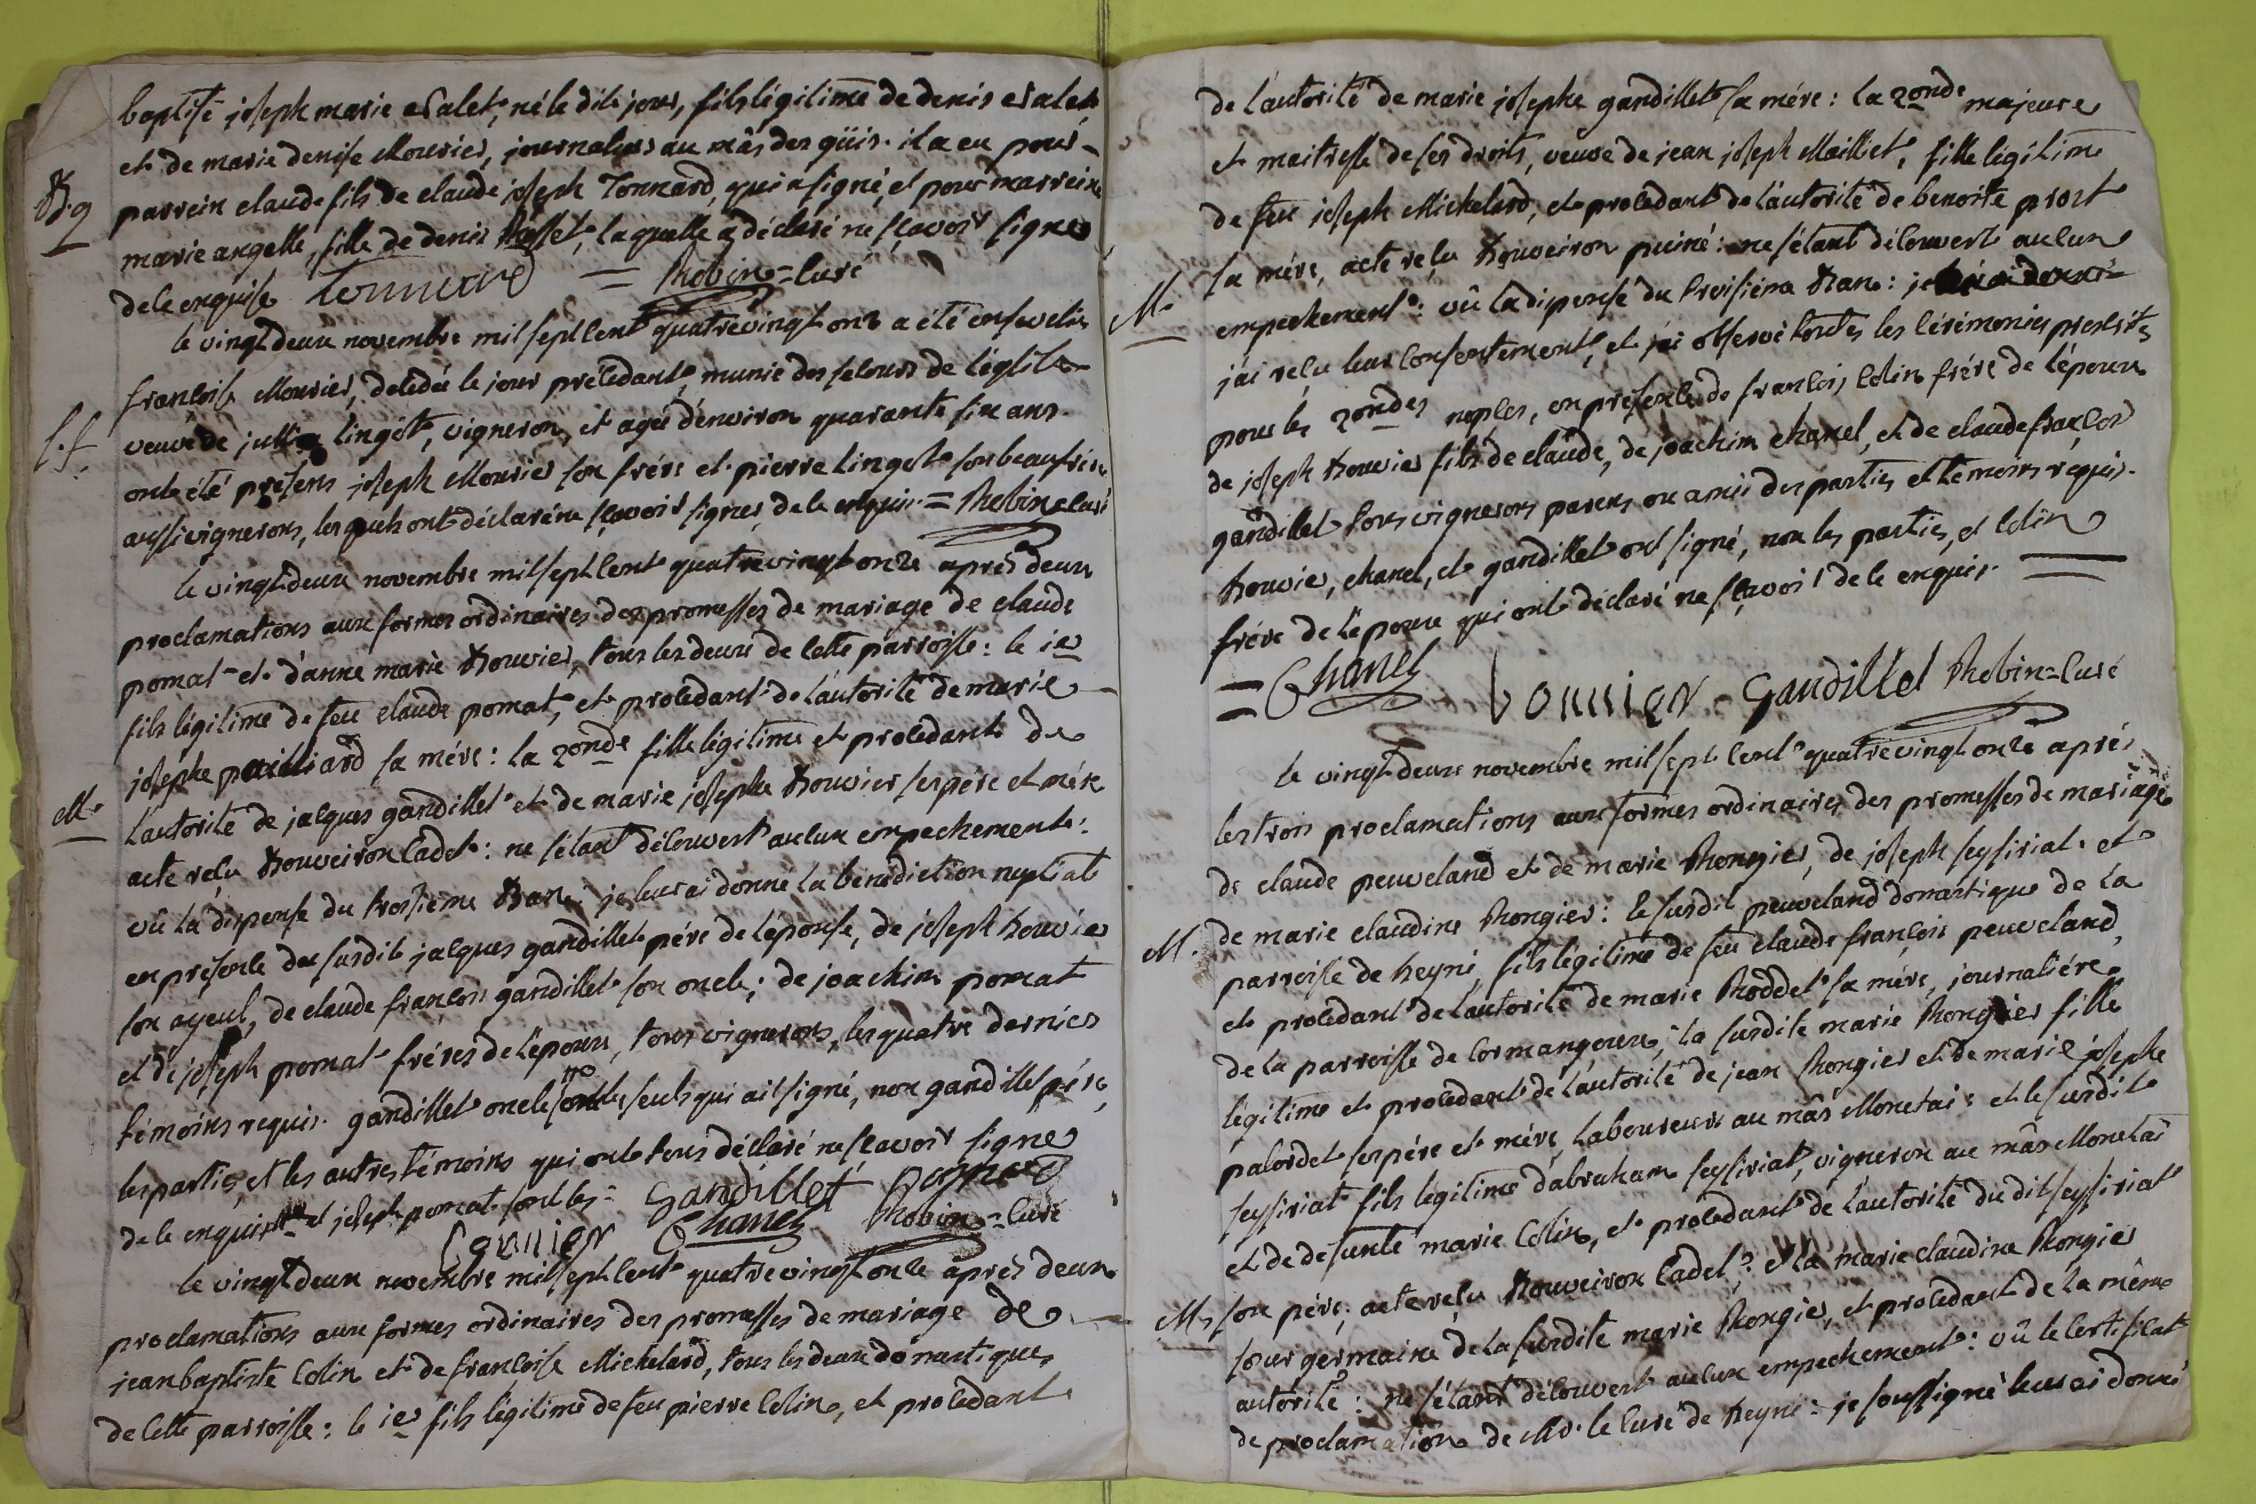 baptisé joseph marie calet, né le dit jour, fils légitime de denis calet,
et de marie denise Mourier, journaliers au mâs des güis. il a eu pour
B. g
parrein claude fils de claude joseph Tonnard, qui a signé, et pour marreine
marie angelle, fille de denis, laquelle a déclaré ne sçavoir signer
de ce enquise Tonnard = Robin = curé
le vingt deux novembre mil sept cent quatrevingt onze a été ensevelie
francoise Mourier, décédée le jour précédant, munie des secours de l'église
S. f.
veuve de lingot, vigneron, et agée d'environ quarante six ans.
ont été présens joseph Mourier son frére et pierre lingot son beaufrére
aussi vignerons, lesquels ont déclaré ne sçavoir signer, de ce enquis. = Robin curé
le vingt deux novembre mil sept cent quatrevingt onze aprés deux
proclamations aux formes ordinaires des promesses de mariage de claude
pomat et d'anne marie Bouvier, tous les deux de cette parroisse : le 1er
fils légitime de feu claude pomat, et procedant de l'autorité de marie
josephe sa mére : la 2onde fille légitime et procedant de
M.
l'autorité de jacques gandillet et de marie josephe Bouvier ses pére et mére
acte reçu Bouveiron cadet : ne s'étant découvert aucun empechement :
vû la dispense du troisieme Ban : je leur ai donné la bénédiction nuptiale
en présence du susdit jacques gandillet pére de l'épouse, de joseph bouvier
son ayeul, de claude francois gandillet son oncle ; de joachim pomat
et de joseph pomat fréres de l'époux, tous vignerons, les quatre derniers
témoins requis. gandillet oncle seuls qui ait signé, non gandillet pére,
les parties, et les autres témoins qui ont tous déclaré ne sçavoir signer
de ce enquis et joseph pomat sont les = Gandillet pomat
bouvier Chanel Robin = curé
le vingt deux novembre mil sept cent quatrevingt onze aprés deux
proclamations aux formes ordinaires des promesses de mariage de
jean baptiste Colin et de francoise Michelard, tous les deux domestiques
de cette parroisse : le 1er fils légitime de feu pierre Colin, et procedant
de l'autorité de marie josephe gandillet sa mére : la 2onde majeure
et maitresse de ses droits, veuve de jean joseph Mailliet, fille légitime
de feu joseph Michelard, et procedant de l'autorité de benoite prost
sa mére, acte reçu Bouveiron puiné : ne s'étant découvert aucun
M.
empechement : vû la dispense du troisiéme Ban : je
j'ai reçu leur consentement, et j'ai observé toutes les cérémonies prescrites
pour les 2ondes nopces, en présence de francois Colin frére de l'époux
de joseph Bouvier fils de claude, de joachim chanel, et de claude françois
gandillet tous vignerons parens ou amis des parties et témoins réquis.
Bouvier, chanel, et gandillet ont signé, non les parties, et Colin
frére de l'époux qui ont déclaré ne sçavoir de ce enquis.
= Chanel bouvier Gandillet Robin = curé
le vingt deux novembre mil sept cent quatrevingt onze aprés
les trois proclamations aux formes ordinaires des promesses de mariage
de claude peuveland et de marie Rongier, de joseph seysiriat et
de marie claudine Rongier : le susdit peuveland domestique de la
M.
parroisse de treyni, fils légitime de feu claude françois peuveland,
et procedant de l'autorité de marie Roddet sa mére, journaliére
de la parroisse de Cormangoux, la susdite marie Rongier fille
légitime et procedant de l'autorité de jean Rongier et de marie josephe
palordet ses pére et mére, laboureurs au mâs Monetai : et le susdit
seysiriat fils légitime d'abraham seysiriat, vigneron au mâs Monetai
et de défunte marie Colin, et procedant de l'autorité du dit seysiriat
M.
son pére, acte reçu Bouveiron cadet : et la marie claudine Rongier
sœur germaine de la susdite marie Rongier, et procedant de la même
autorité : ne s'étant découvert aucun empechement : vû le certificat
de proclamation de Mr. le curé de treyni : je soussigné leur ai donné